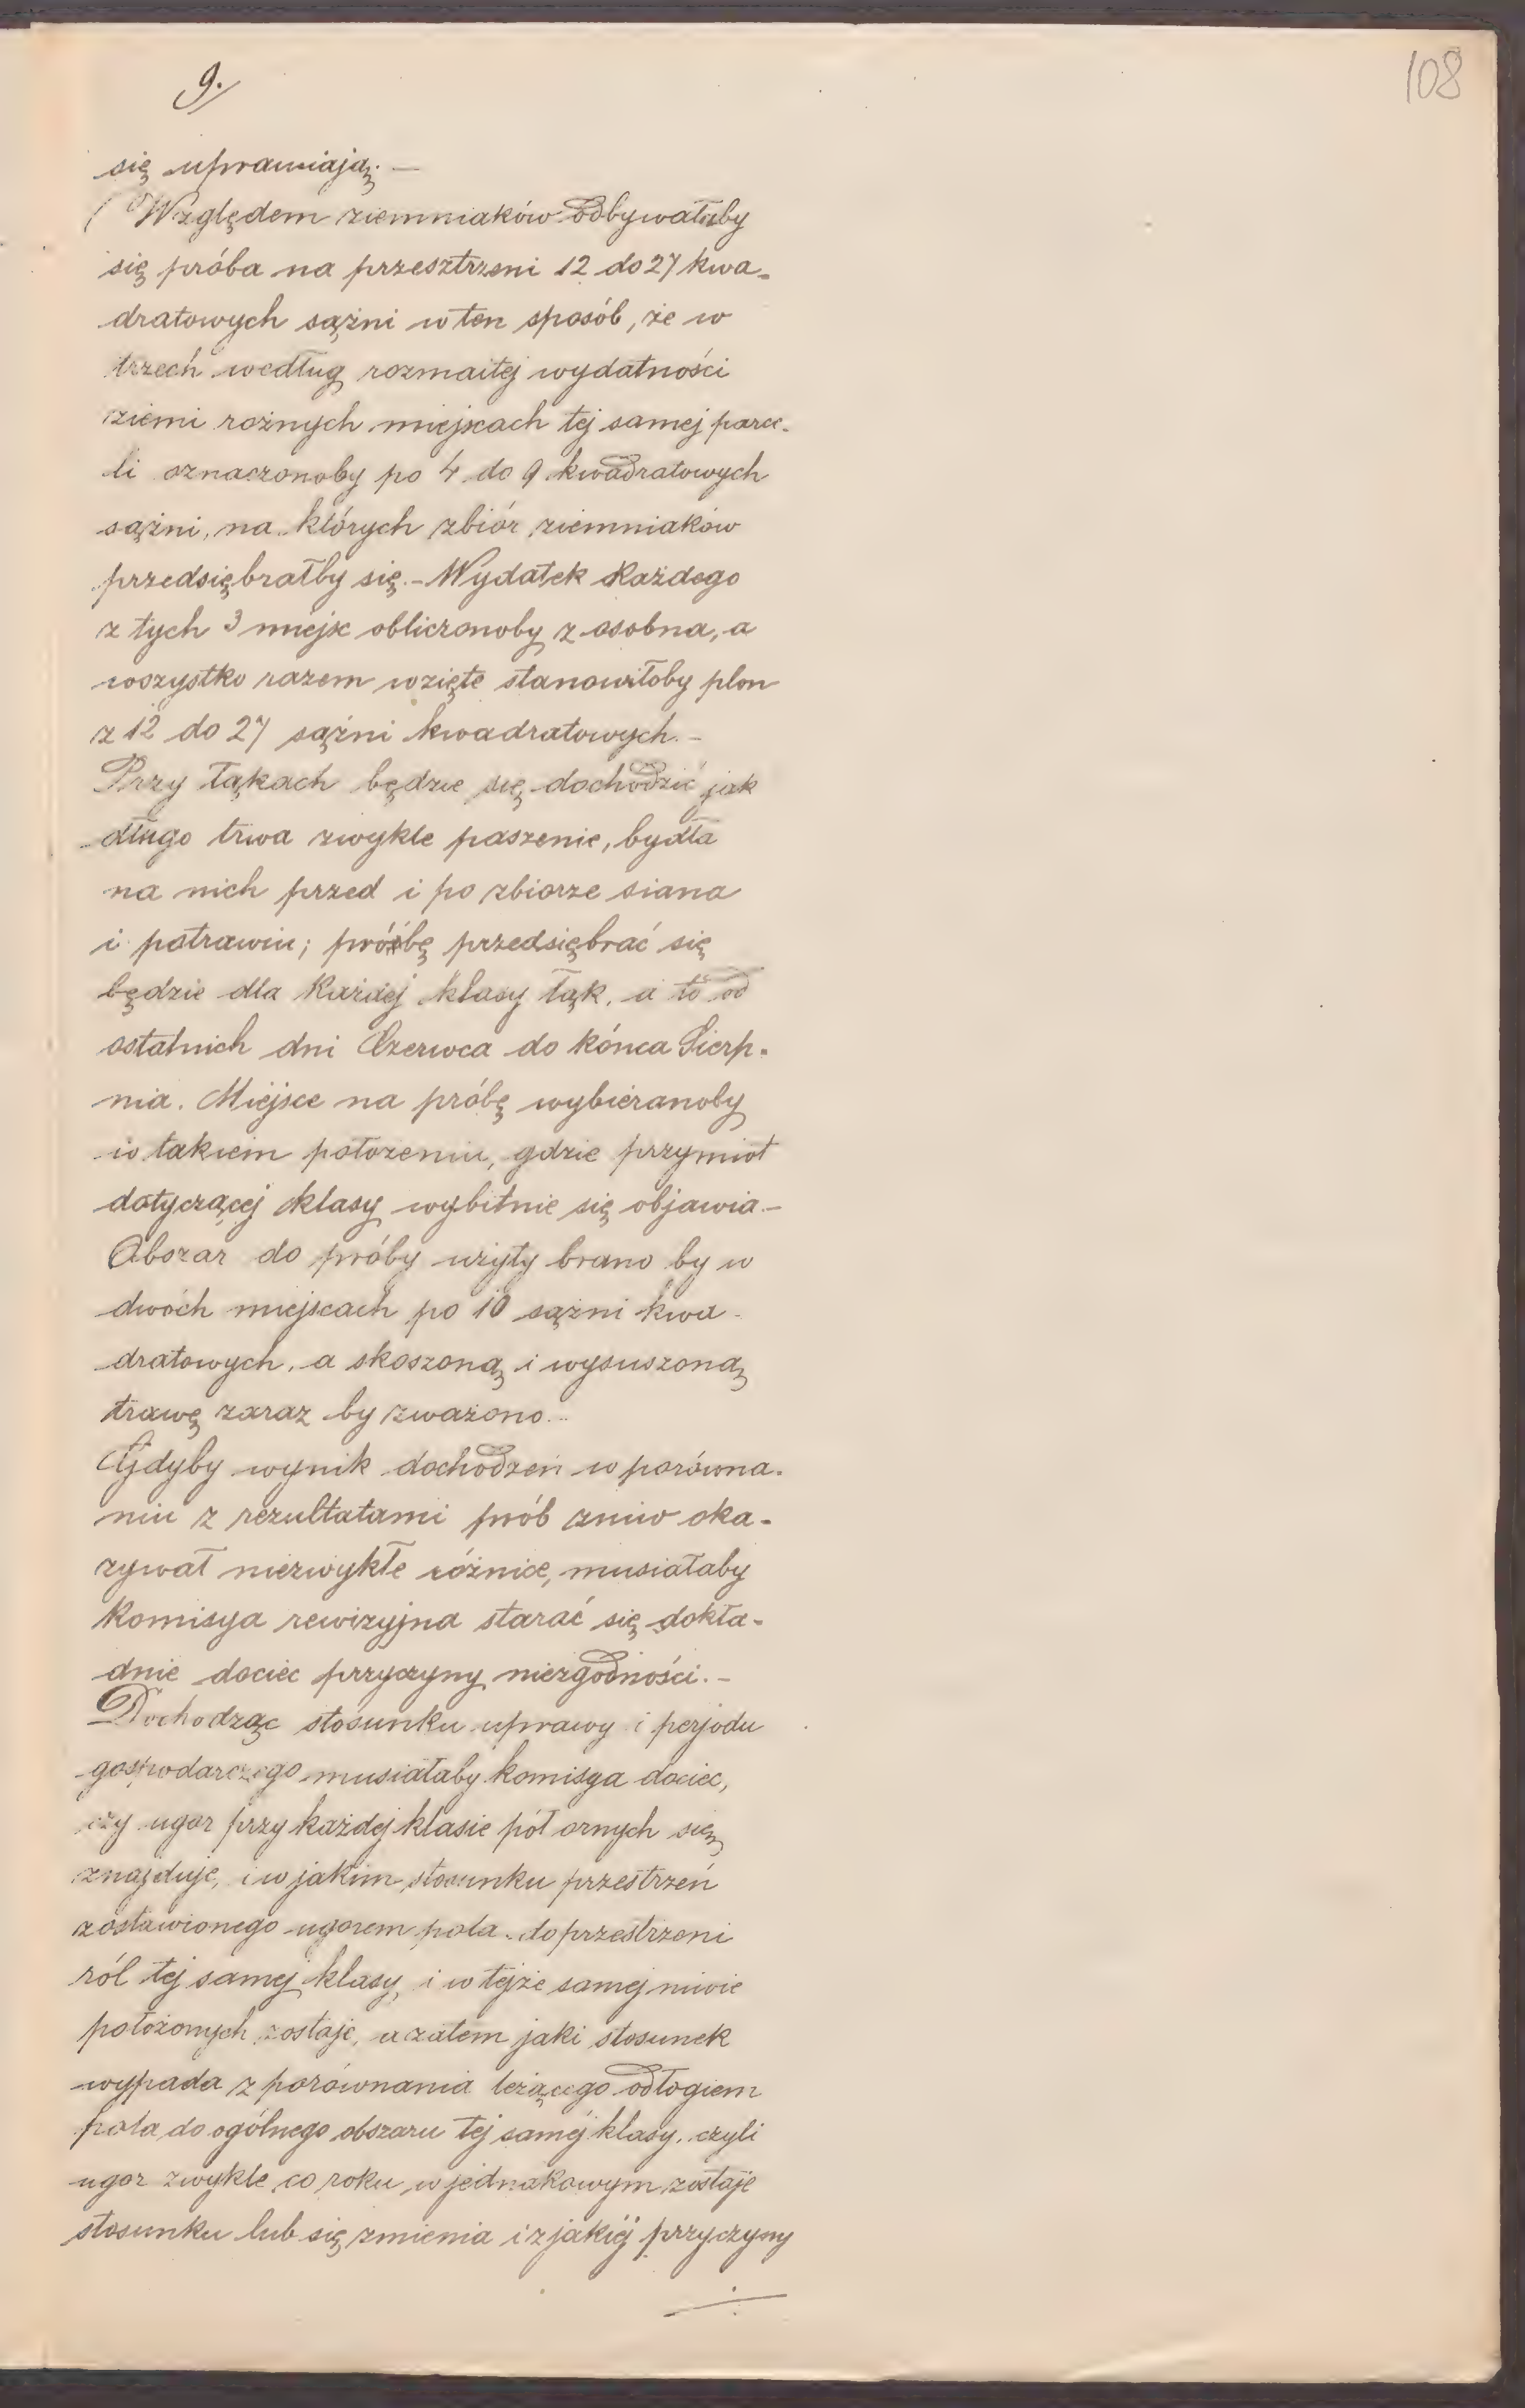 9.
108
się uprawiają. —
Względem ziemniaków odbywałaby
się próba na przesztrzeni 12 do 27 kwa-
dratowych sążni w ten sposób, że w
trzech według rozmaitej wydatności
ziemi rożnych miejscach tej samej parce-
li oznaczonoby po 4 do 9 kwadratowych
sążni, na których zbiór ziemniaków
przedsiębrałby się. – Wydatek każdego
z tych 3 miejsc obliczonoby z osobna, a
wszystko razem wzięte stanowiłoby plon
z 12 do 27 sążni kwadratowych. –
Przy łąkach będzie się dochodzić jak
długo trwa zwykle paszenie, bydła
na nich przed i po zbiorze siana
i potrawiu; próbę przedsiębrać się
będzie dla każdej klasy łąk, a to od
ostatnich dni Czerwca do końca Sierp-
nia. Miejsce na próbę wybieranoby
w takiem położeniu, gdzie przymiot
dotyczącej klasy wybitnie się objawia. –
Obszar do próby użyty brano by w
dwóch miejscach po 10 sążni kwa-
dratowych, a skoszoną i wysuszoną
trawę zaraz by zważono. –
Gdyby wynik dochodzeń w porówna-
niu z rezultatami prób żniw oka-
zywał niezwykłe różnice, musiałaby
Komisya rewizyjna starać się dokła-
dnie dociec przyczyny niezgodności. –
Dochodząc stosunku uprawy i perjodu
gospodarczego musiałaby komisya dociec,
czy ugor przy każdej klasie pół ornych się
znajduje, i w jakim stosunku przestrzeń
zostawionego ugorem pola do przestrzeni
ról tej samej klasy, i w tejże samej niwie
położonych zostaje, a zatem jaki stosunek
wypada z porównania leżącego odłogiem
pola do ogólnego obszaru tej samej klasy, czyli
ugor zwykle co roku w jednakowym zostaje
stosunku lub się zmienia i z jakiej przyczyny